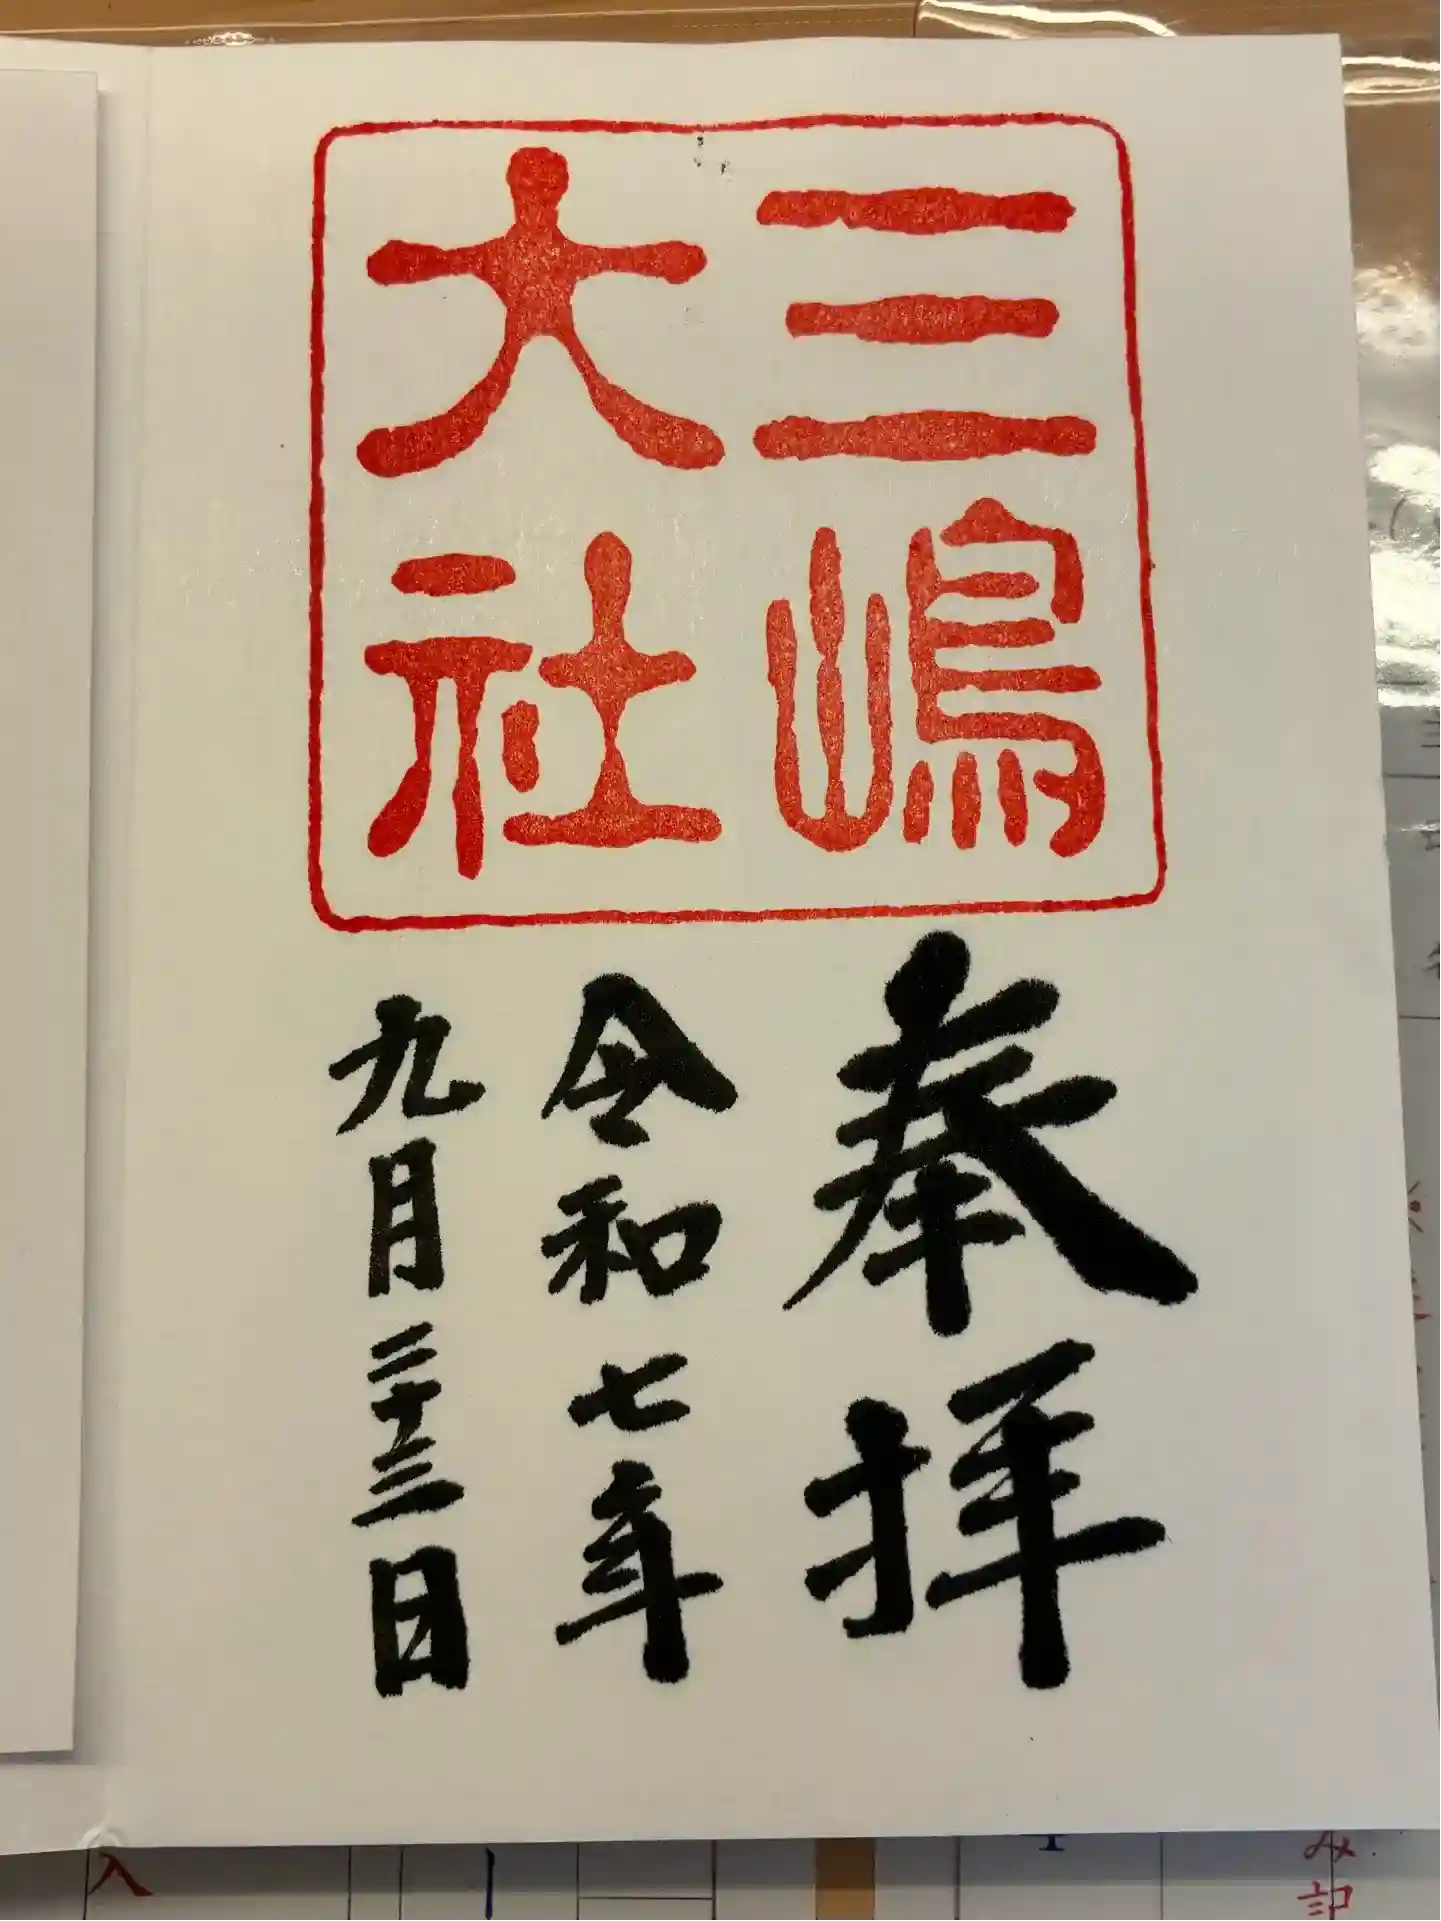 三嶋
大社
奉拝
令和七年
九月二十三日
入
み記